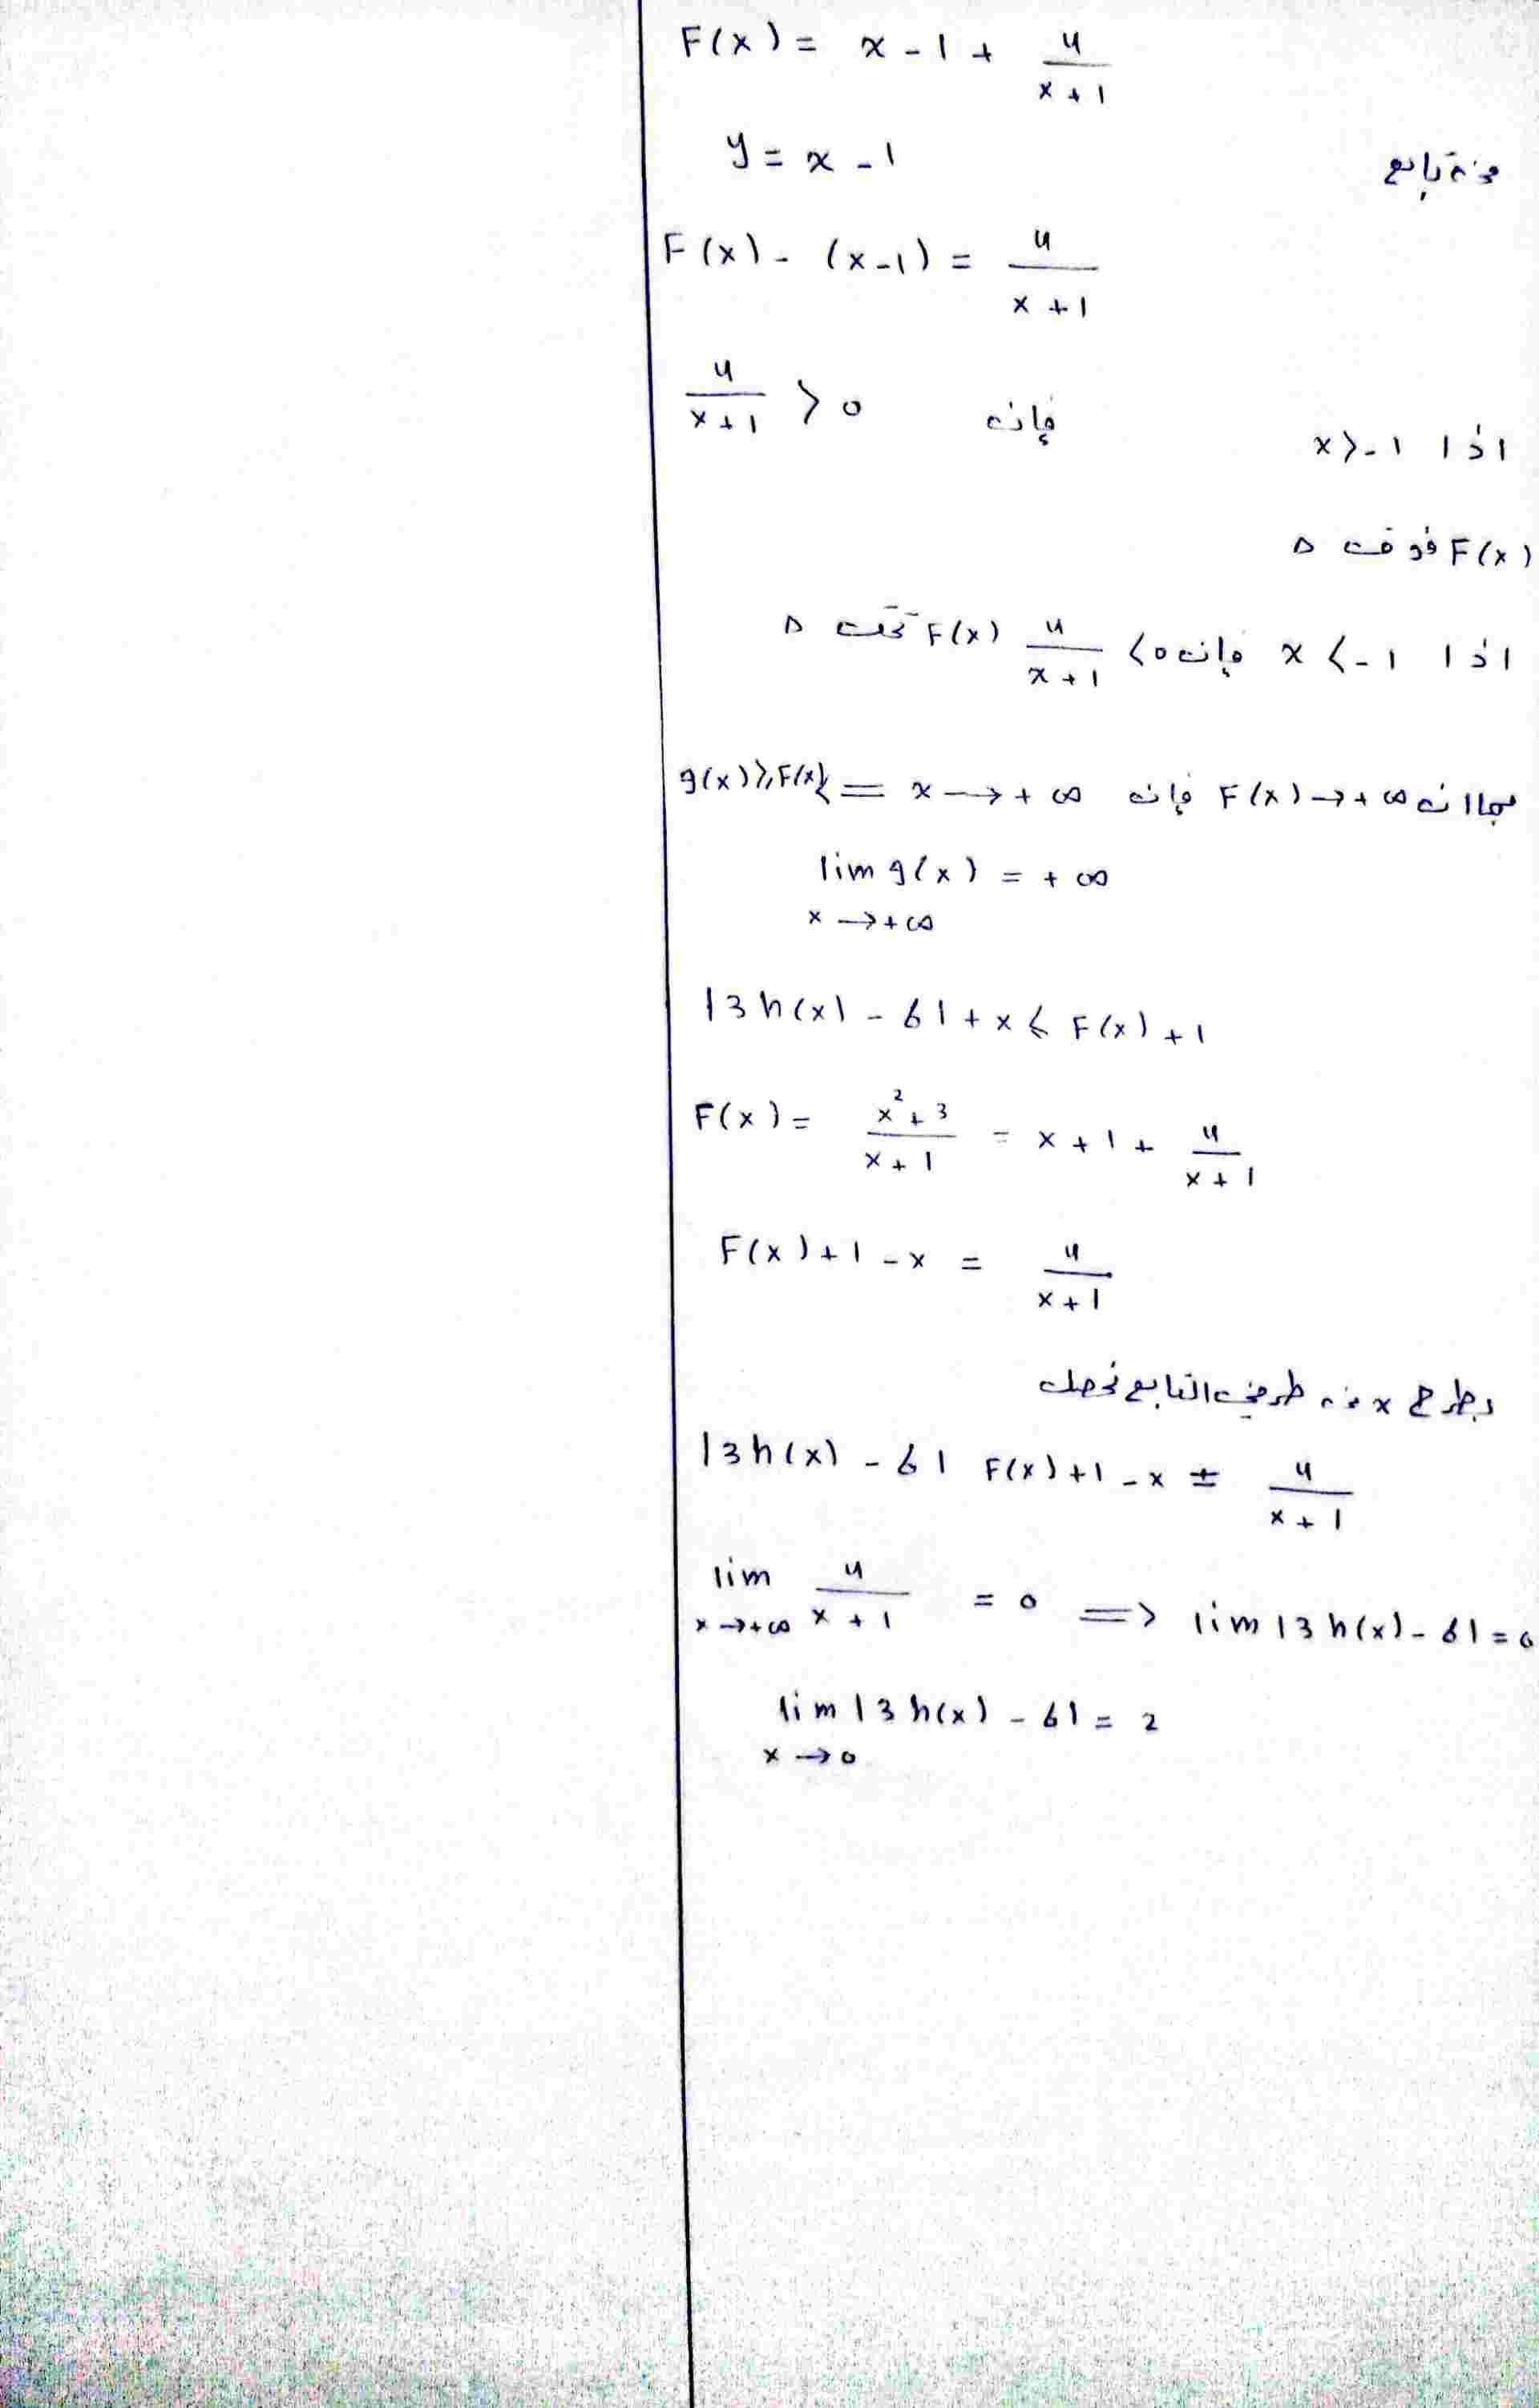 F(x) = x - 1 + 4/(x+1)
y = x - 1 من تابع
F(x) - (x-1) = 4/(x+1)
اذا x > -1 فإن 4/(x+1) > 0
F(x) فوق Δ
اذا x < -1 فإن 4/(x+1) < 0 F(x) تحت Δ
بما ان F(x) → +∞ فإن x → +∞ = g(x) ≥ F(x)
lim g(x) = +∞
x → +∞
|3h(x) - 6| + x ≤ F(x) + 1
F(x) = (x² + 3)/(x+1) = x + 1 + 4/(x+1)
F(x) + 1 - x = 4/(x+1)
بطرح x من طرفي التابع نحصل
|3h(x) - 6| F(x) + 1 - x = 4/(x+1)
lim 4/(x+1) = 0 => lim |3h(x) - 6| = 0
x → +∞
lim |3h(x) - 6| = 2
x → 0